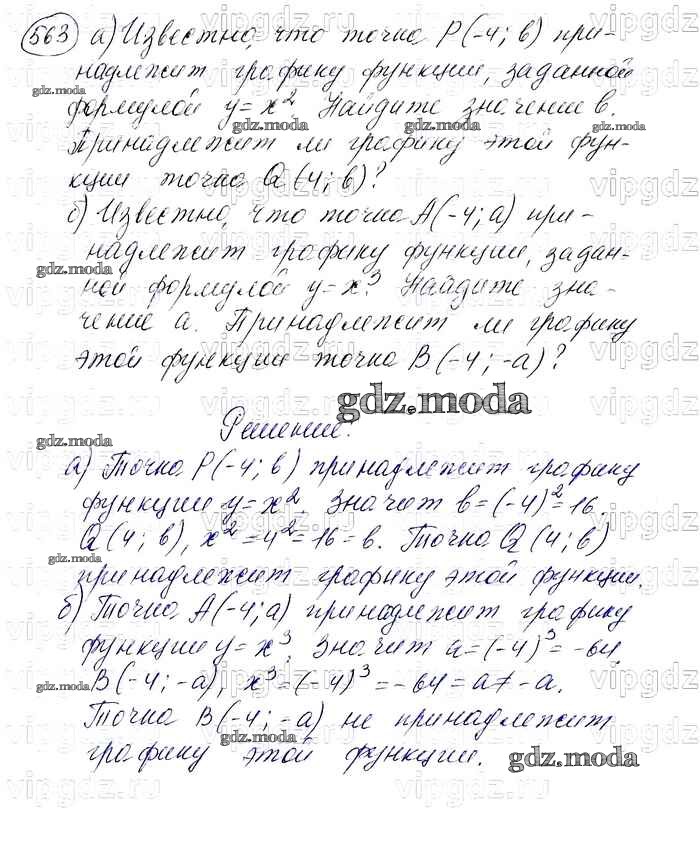 563 а) Известно, что точка P(-4; b) при-
надлежит графику функции, заданной
формулой y=x². Найдите значение b.
Принадлежит ли графику этой фун-
кции точка Q(4; b)?
б) Известно, что точка A(-4; a) при-
надлежит графику функции, задан-
ной формулой y=x³. Найдите зна-
чение a. Принадлежит ли графику
этой функции точка B(-4; -a)?
gdz.moda
Решение.
а) Точка P(-4; b) принадлежит графику
функции y=x². Значит b=(-4)²=16.
Q(4; b), x²=4²=16=b. Точка Q(4; b)
принадлежит графику этой функции.
б) Точка A(-4; a) принадлежит графику
функции y=x³. Значит a=(-4)³=-64.
B(-4; -a), x³=(-4)³=-64=a≠-a.
Точка B(-4; -a) не принадлежит
графику этой функции.
gdz.moda